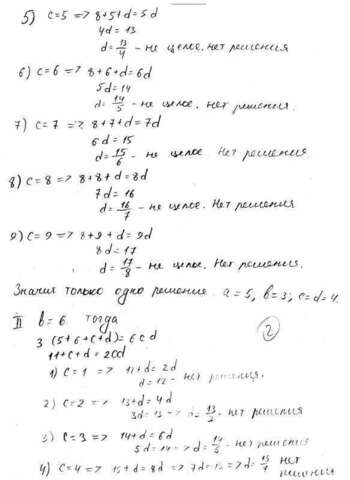 5) c=5 => 8+5+d=5d
4d=13
d=13/4 - не целое. нет решения
6) c=6 => 8+6+d=6d
5d=14
d=14/5 - не целое. нет решения.
7) c=7 => 8+7+d=7d
6d=15
d=15/6 - не целое Нет решения
8) c=8 => 8+8+d=8d
7d=16
d=16/7 - не целое. Нет решения
9) c=9 => 8+9+d=9d
8d=17
d=17/8 - не целое. Нет решения.
Значит только одно решение. a=5; b=3; c=d=4.
II b=6 тогда
2
3(5+6+c+d)=6cd
11+c+d=2cd
1) c=1 => 12+d=2d
d=12 - нет решения.
2) c=2 => 13+d=4d
3d=13 => d=13/3 - нет решения
3) c=3 => 14+d=6d
5d=14 => d=14/5 - нет решения
4) c=4 => 15+d=8d => 7d=15 => d=15/7 нет
решения